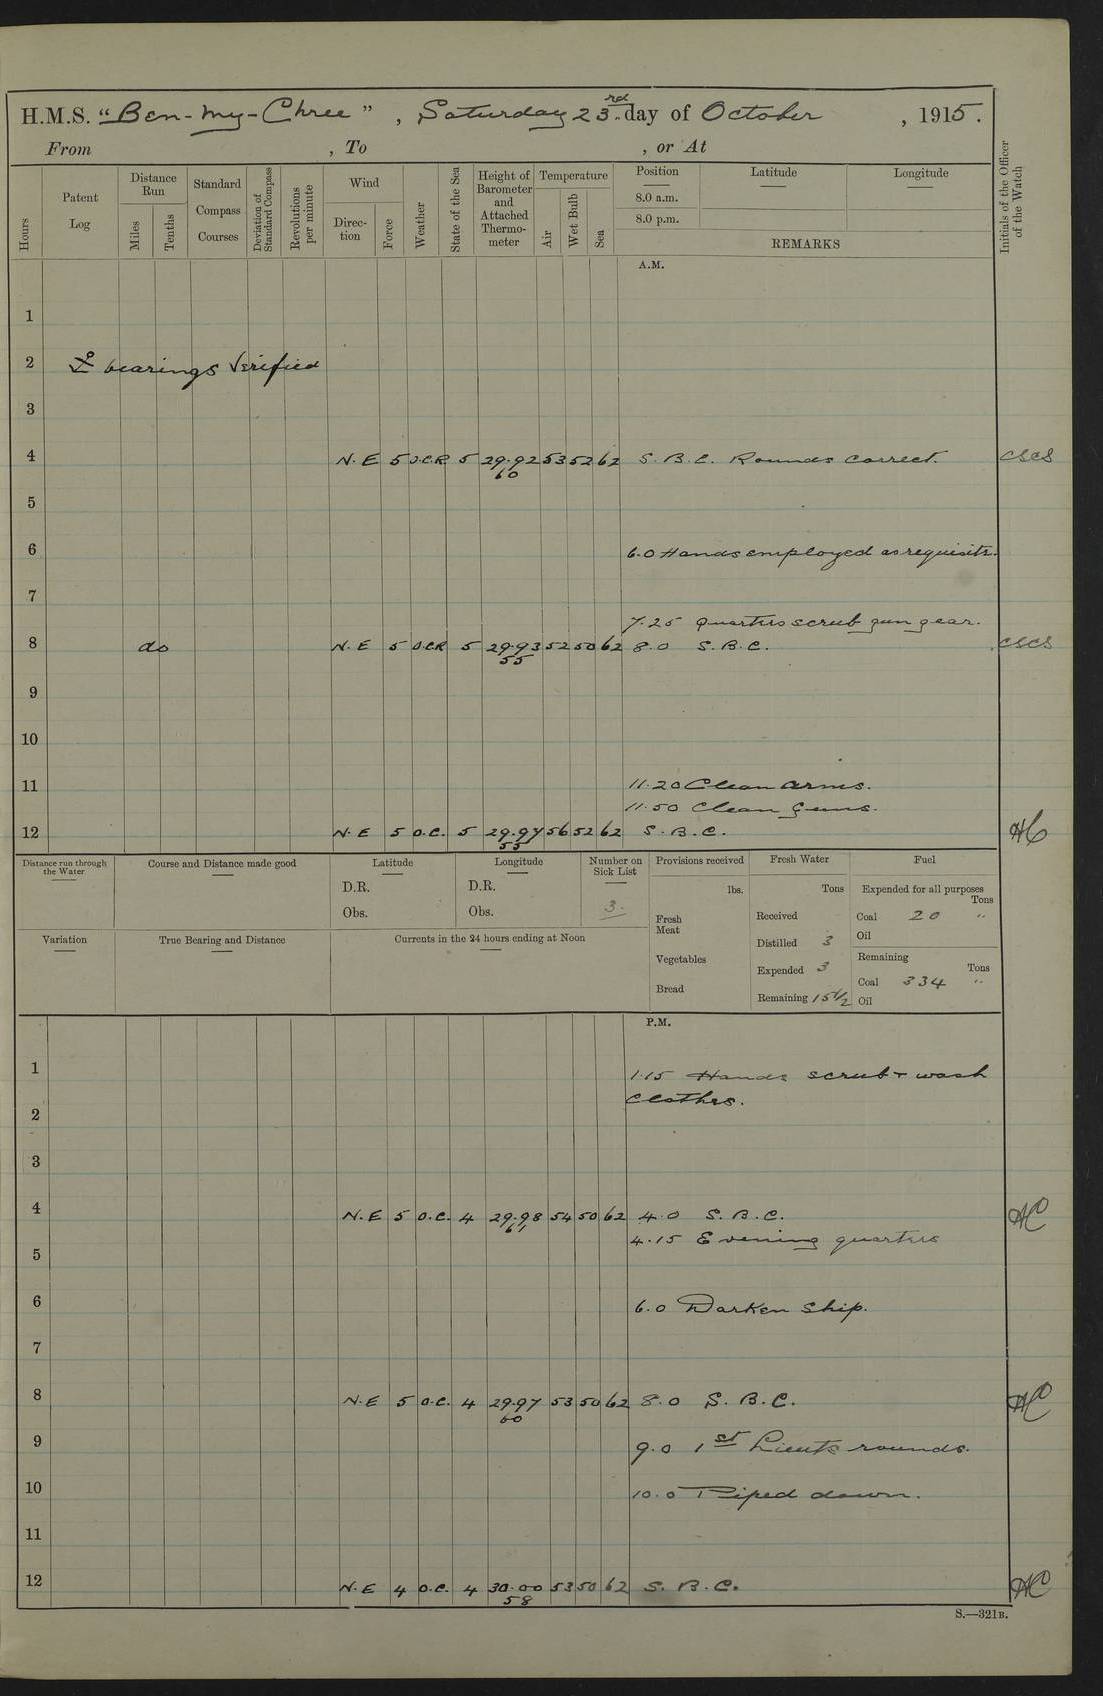 H.M.S. "Ben-my-Chree", Saturday 23rd day of October, 1915.
From , To , or At
Hours
Patent Log
Distance Run
Miles
Tenths
Standard Compass Courses
Deviation of Standard Compass
Revolutions per minute
Wind
Direction
Force
Weather
State of the Sea
Height of Barometer and Attached Thermometer
Temperature
Air
Wet Bulb
Sea
Position
8.0 a.m.
8.0 p.m.
Latitude
Longitude
REMARKS
Initials of the Officer of the Watch
A.M.
1
2 bearings verified
3
4 N.E 5 O.C.R 5 29.92 53 52 62 S.B.C. Rounds correct. CSCS
60
5
6 6.0 Hands employed as requisite.
7
7.25 Quarters scrub gun gear.
8 do N.E 5 O.C.R 5 29.93 52 50 62 8.0 S.B.C. CSCS
55
9
10
11 11.20 Clean arms.
11.50 Clean Guns.
12 N.E 5 O.C. 5 29.97 56 52 62 S.B.C. HC
55
Distance run through the Water
Course and Distance made good
Latitude
D.R.
Obs.
Longitude
D.R.
Obs.
Number on Sick List
3.
Provisions received
lbs.
Fresh Meat
Vegetables
Bread
Fresh Water
Tons
Received
Distilled 3
Expended 3
Remaining 15 1/2
Fuel
Expended for all purposes
Tons
Coal 20 "
Oil
Remaining
Tons
Coal 334 "
Oil
Variation
True Bearing and Distance
Currents in the 24 hours ending at Noon
P.M.
1 1.15 Hands scrub + wash
2 clothes.
3
4 N.E 5 O.C. 4 29.98 54 50 62 4.0 S.B.C. HC
61
4.15 Evening quarters
5
6 6.0 Darken ship.
7
8 N.E 5 O.C. 4 29.97 53 50 62 8.0 S.B.C. HC
60
9 9.0 1st Lieuts rounds.
10 10.0 Piped down.
11
12 N.E 4 O.C. 4 30.00 53 50 62 S.B.C. HC
58
S.—321B.